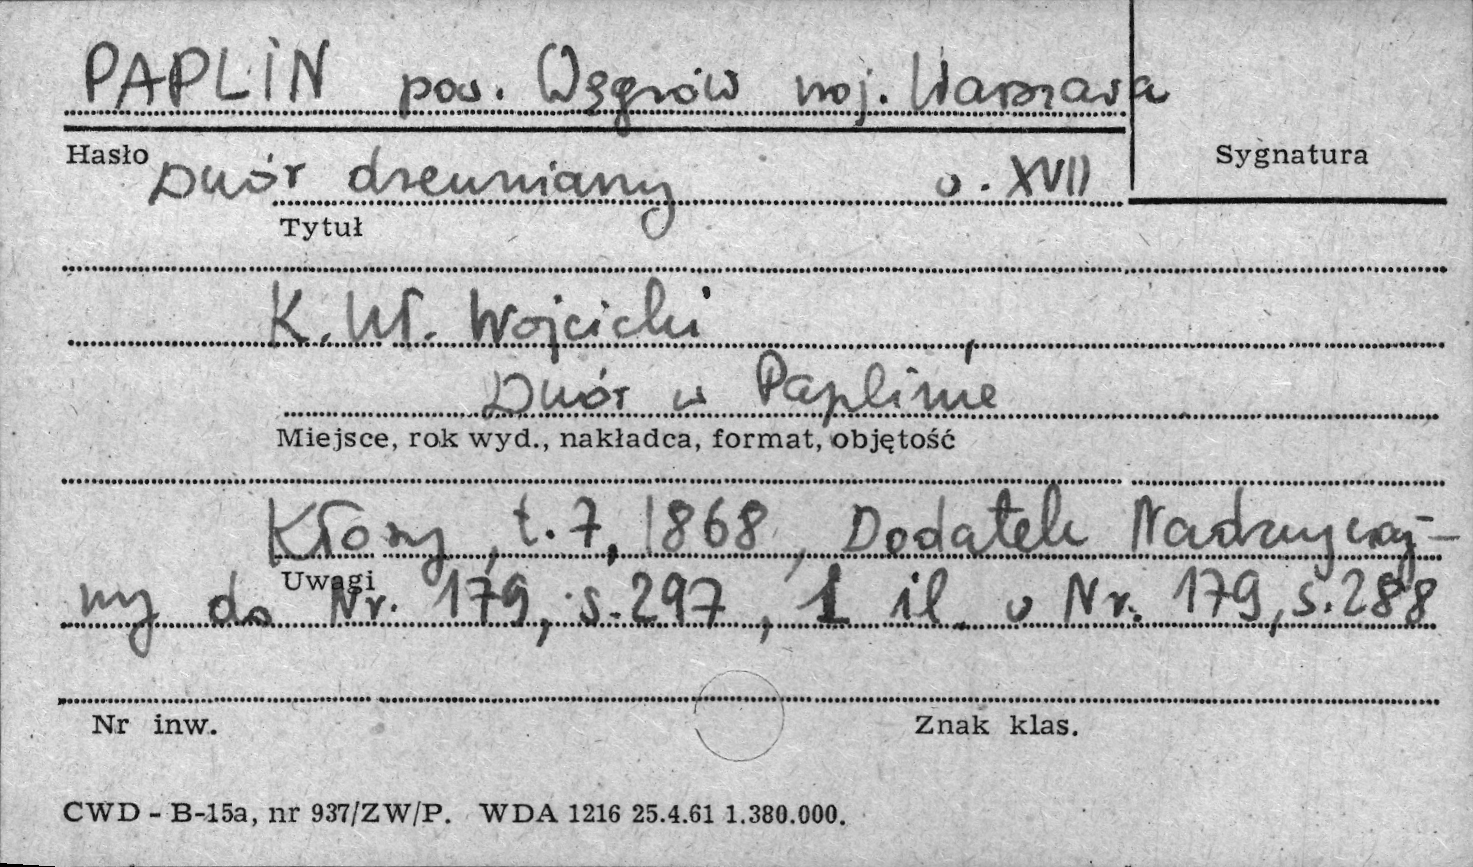 PAPLIN pow. Węgrów woj. Warszawa
Hasło
Sygnatura
Dwór drewniany w. XVII
Tytuł
K. Wł. Wojcicki
Dwór w Paplinie
Miejsce, rok wyd., nakładca, format, objętość
Kłosy, t. 7, 1868, Dodatek Nadzwyczaj-
Uwagi
ny do Nr. 179, s. 297, 1 il. w Nr. 179, s. 288
Nr inw.
Znak klas.
CWD - B-15a, nr 937/ZW/P. WDA 1216 25.4.61 1.380.000.